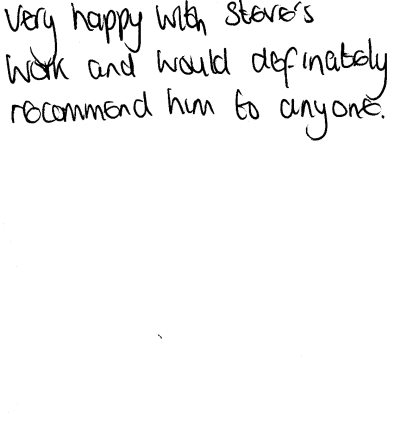 Very happy with Steve's
work and would definately
recommend him to anyone.